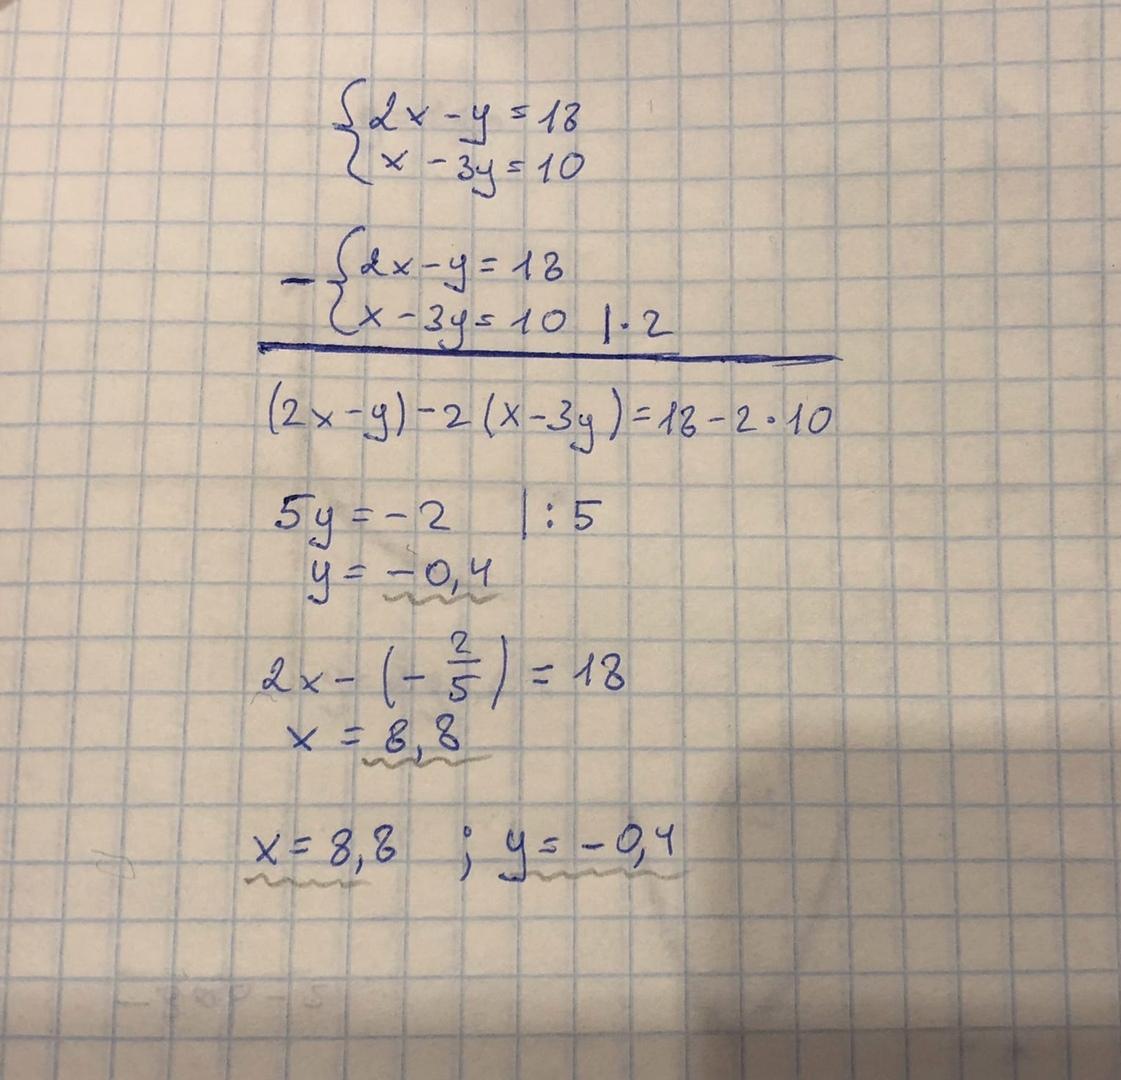 {2x - y = 18
x - 3y = 10
- {2x - y = 18
x - 3y = 10 | · 2
(2x - y) - 2 (x - 3y) = 18 - 2 · 10
5y = - 2 | : 5
y = - 0,4
2x - (- 2/5) = 18
x = 8,8
x = 8,8 ; y = - 0,4